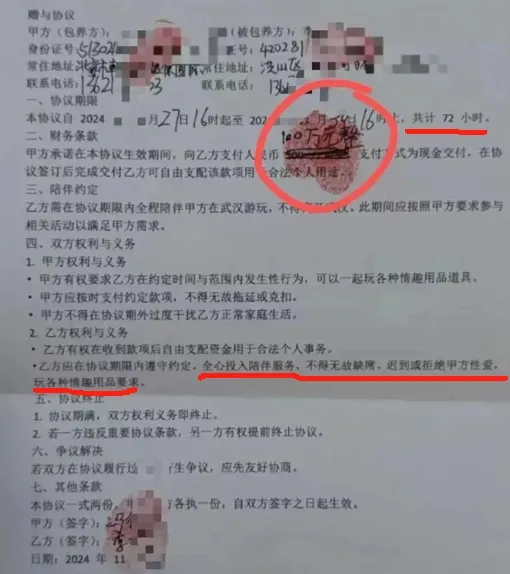 赠与协议
甲方（包养方）： （被包养方）：李
身份证号： 证号：420281
常住地址： 常住地址：
联系电话：13621 23 联系电话：136
一、协议期限
本协议自 2024 月27日16时起至 202 月 日16时止，共计 72 小时。
二、财务条款
甲方承诺在本协议生效期间，向乙方支付人民币 100万元整 支付方式为现金交付，在协
议签订后完成交付乙方可自由支配该款项用于合法个人用途
三、陪伴约定
乙方需在协议期限内全程陪伴甲方在武汉游玩，不得 武汉。此期间应按照甲方要求参与
相关活动以满足甲方需求。
四、双方权利与义务
1. 甲方权利与义务
• 甲方有权要求乙方在约定时间与范围内发生性行为，可以一起玩各种情趣用品道具。
• 甲方应按时支付约定款项，不得无故拖延或克扣。
• 甲方不得在协议期外过度干扰乙方正常家庭生活。
2. 乙方权利与义务
• 乙方有权在收到款项后自由支配资金用于合法个人事务。
•乙方应在协议期限内遵守约定，全心投入陪伴服务，不得无故缺席、迟到或拒绝甲方性爱，
玩各种情趣用品要求。
五、协议终止
1. 协议期满，双方权利义务即终止。
2. 若一方违反重要协议条款，另一方有权提前终止协议。
六、争议解决
若双方在协议履行过 生争议，应先友好协商。
七、其他条款
本协议一式两份， 方各执一份，自双方签字之日起生效。
甲方（签字）：
乙方（签字）：李
日期：2024 年 11